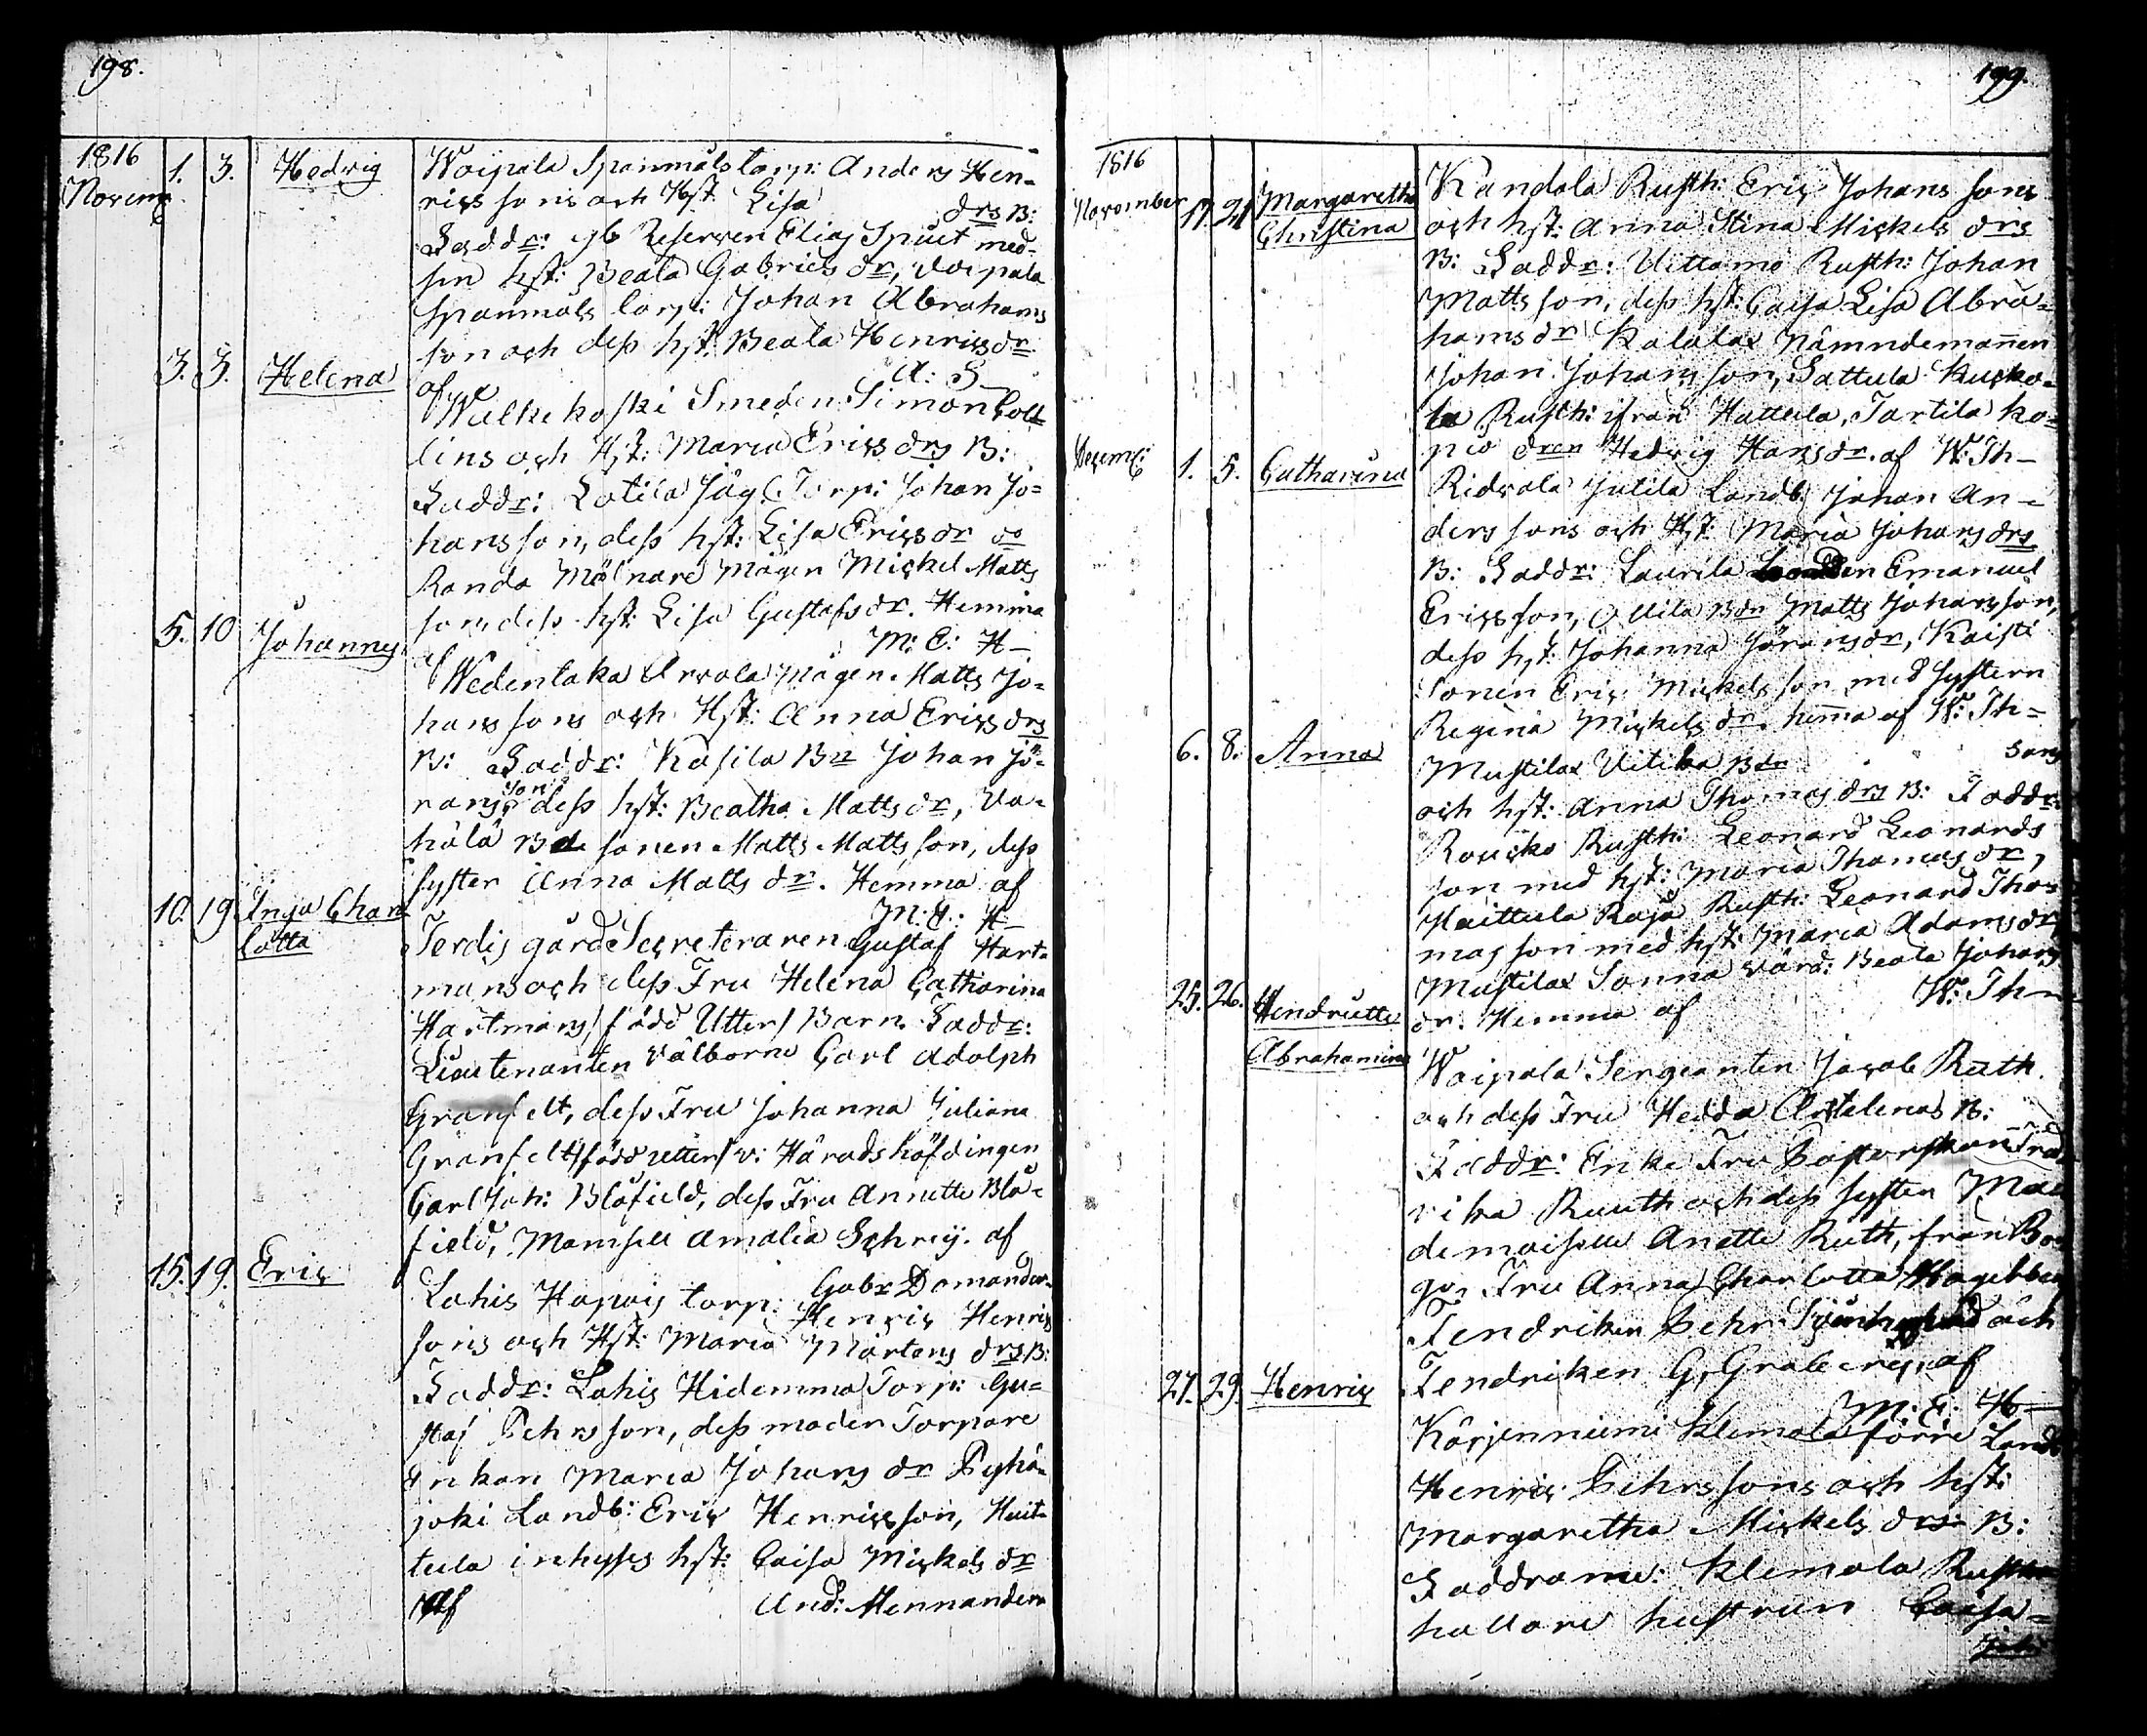 198.
1816
Novemb.
1. 3. Hedwig
Woipala Spanmåls torp: Anders Hen-
rics sons och Hst: Lisa drs B:
Faddr: gb Reserven Elias Spuut med
sin hst: Beata Gabriels dr, Voipala
spanmåls torp: Johan Abrahams
son och dess hst: Beata Henrics dr
af A: S
3. 3. Helena
Walkekoski Smeden Simon Coll
lins och Hst: Maria Erics drs B:
Faddr: Lotila Jäg. Torp: Johan Jo-
hans son, dess hst: Lisa Erics dr oo
Randa Mölnare Mågen Mickel Matts
son, dess hst: Lisa Gustafs dr. Hemma
af M: E: H
5. 10 Johannes
Wedentaka Arvola Mågen Matts Jo-
hans sons och Hst: Anna Erics drs
B: Faddr: Kasila Bn Johan Jö-
rans son dess hst: Beatha Matts dr, Va-
hälä Bde sonen Matts Mattsson, dess
syster Anna Matts dr. Hemma af
M: E: H
10. 19. Inga Char-
lotta
Jerdis gård Secreteraren Gustaf Hart-
mans och dess Fru Helena Catharina
Hartmans / född Utter / Barn. Faddr:
Lieutenanten Välborne Carl Adolph
Granfelt, dess Fru Johanna Juliana
Granfelt / född Utter / v: Häradshöfdingen
Carl Joh: Blåfield, dess Fru Annette Blå-
field, Mamsell Amalia Schrey. af
Gabr Domander
15. 19. Eric
Lahis Hapois torp: Henric Henrics
sons och Hst: Maria Mårtens drs B:
Faddr: Lahis Hidemma Torp: Gu-
staf Pehrsson, dess moder Torpare
Enkan Maria Johans dr Pyhä-
joki Landb: Eric Henricsson, Huit-
tula inhyses hst: Caisa Mickels dr
Af And: Mennander
199.
1816
November
17. 24 Margaretha
Christina
Kandola Rusth: Eric Johans sons
och hst: Anna Stina Mickels drs
B: Faddr: Uittamo Rusth: Johan
Matts son, dess hst: Caisa Lisa Abra-
hams dr Kalalax Nämndemannen
Johan Johans son, Sattula Kusko-
la Rusth: ifrån Hattula, Tartila ko-
pio dren Hedvig Hans dr. af W: Th
Decemb:
1. 5. Catharina
Ridvala Jutila Landb Johan An-
ders sons och Hst: Maria Johans drs
B: Faddr: Laurila Emanuel
Ericsson, Ollila Bdn Matts Johansson,
dess hst: Johanna Jörans dr, Kaisti
Sonen Eric Mickelsson med systern
Regina Mickels dr. hemma af W: Th
6. 8. Anna
Mustila Uitika Bdn sons
och hst: Anna Thomas drs B: Faddr
Roucko Rusth: Leonard Leonards
son med hst: Maria Thomas dr,
Haittula Raja Rusth: Leonard Tho-
mas son med hst: Maria Adams dr,
Mustila Sonna värd: Beata Johans
dr. Hemma af W: Th
25. 26. Hendrette
Abrahamina
Woipala Sergeanten Jacob Ruth
och dess Fru Hedda Artelenas B:
Faddr: Enke Fru Pastorskan Fred-
rika Ruuth och dess syster Ma-
demoiselle Anette Ruth, från Bor-
go, Fru Anna Charlotta Hagelberg
Fendriken Pehr och
Fendriken G, Graberg, af
M: E: H
27. 29. Henric
Kärjenniemi Klemola förre Landb
Henric Pehrssons och hst:
Margaretha Mickels drs B:
Faddrarne: Klemola Rust-
hållare hustrun Caisa